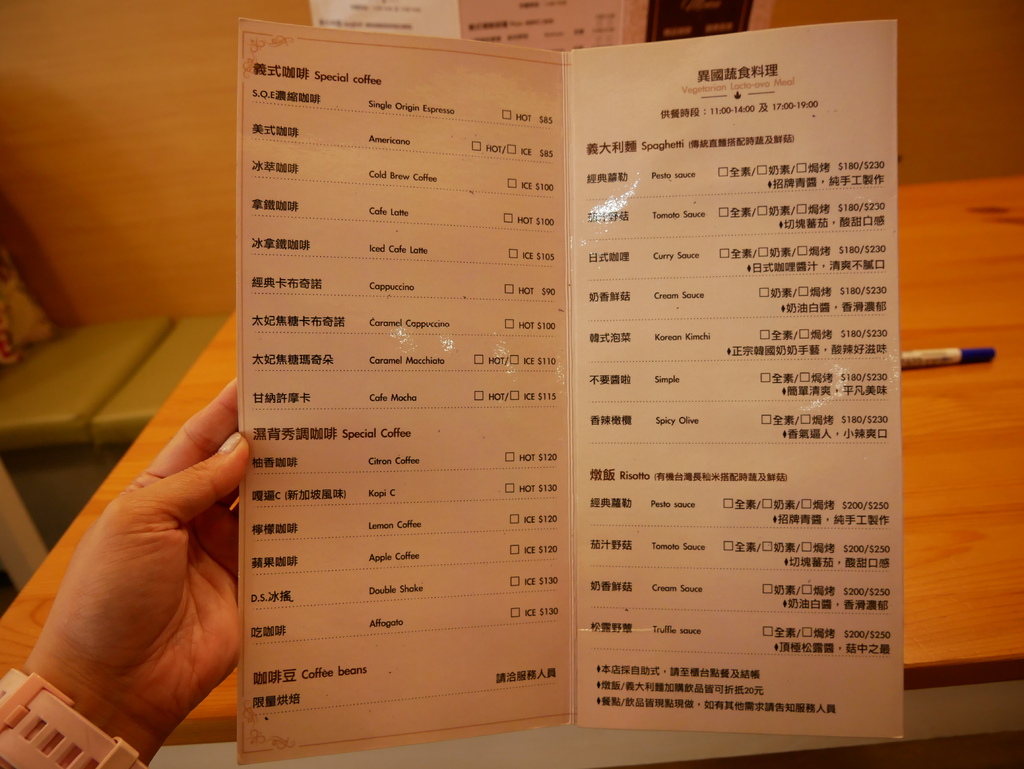 義式咖啡 Special coffee
S.O.E濃縮咖啡 Single Origin Espresso □ HOT $85
美式咖啡 Americano □ HOT/□ ICE $85
冰萃咖啡 Cold Brew Coffee □ ICE $100
拿鐵咖啡 Cafe Latte □ HOT $100
冰拿鐵咖啡 Iced Cafe Latte □ ICE $105
經典卡布奇諾 Cappuccino □ HOT $90
太妃焦糖卡布奇諾 Caramel Cappuccino □ HOT $100
太妃焦糖瑪奇朵 Caramel Macchiato □ HOT/□ ICE $110
甘納許摩卡 Cafe Mocha □ HOT/□ ICE $115
濕背秀調咖啡 Special Coffee
柚香咖啡 Citron Coffee □ HOT $120
嘎逼C (新加坡風味) Kopi C □ HOT $130
檸檬咖啡 Lemon Coffee □ ICE $120
蘋果咖啡 Apple Coffee □ ICE $120
D.S.冰搖 Double Shake □ ICE $130
吃咖啡 Affogato □ ICE $130
咖啡豆 Coffee beans
限量烘焙 請洽服務人員
異國蔬食料理
Vegetarian Lacto-ovo Meal
供餐時段：11:00-14:00 及 17:00-19:00
義大利麵 Spaghetti (傳統直麵搭配時蔬及鮮菇)
經典蘿勒 Pesto sauce □全素/□奶素/□焗烤 $180/$230
♦招牌青醬，純手工製作
野菇 Tomato Sauce □全素/□奶素/□焗烤 $180/$230
♦切塊蕃茄，酸甜口感
日式咖哩 Curry Sauce □全素/□奶素/□焗烤 $180/$230
♦日式咖哩醬汁，清爽不膩口
奶香鮮菇 Cream Sauce □奶素/□焗烤 $180/$230
♦奶油白醬，香滑濃郁
韓式泡菜 Korean Kimchi □全素/□焗烤 $180/$230
♦正宗韓國奶奶手藝，酸辣好滋味
不要醬啦 Simple □全素/□焗烤 $180/$230
♦簡單清爽，平凡美味
香辣橄欖 Spicy Olive □全素/□焗烤 $180/$230
♦香氣逼人，小辣爽口
燉飯 Risotto (有機台灣長秈米搭配時蔬及鮮菇)
經典蘿勒 Pesto sauce □全素/□奶素/□焗烤 $200/$250
♦招牌青醬，純手工製作
茄汁野菇 Tomato Sauce □全素/□奶素/□焗烤 $200/$250
♦切塊蕃茄，酸甜口感
奶香鮮菇 Cream Sauce □奶素/□焗烤 $200/$250
♦奶油白醬，香滑濃郁
松露野蕈 Truffle sauce □全素/□焗烤 $200/$250
♦頂極松露醬，菇中之最
♦本店採自助式，請至櫃台點餐及結帳
♦燉飯/義大利麵加購飲品皆可折抵20元
♦餐點/飲品皆現點現做，如有其他需求請告知服務人員